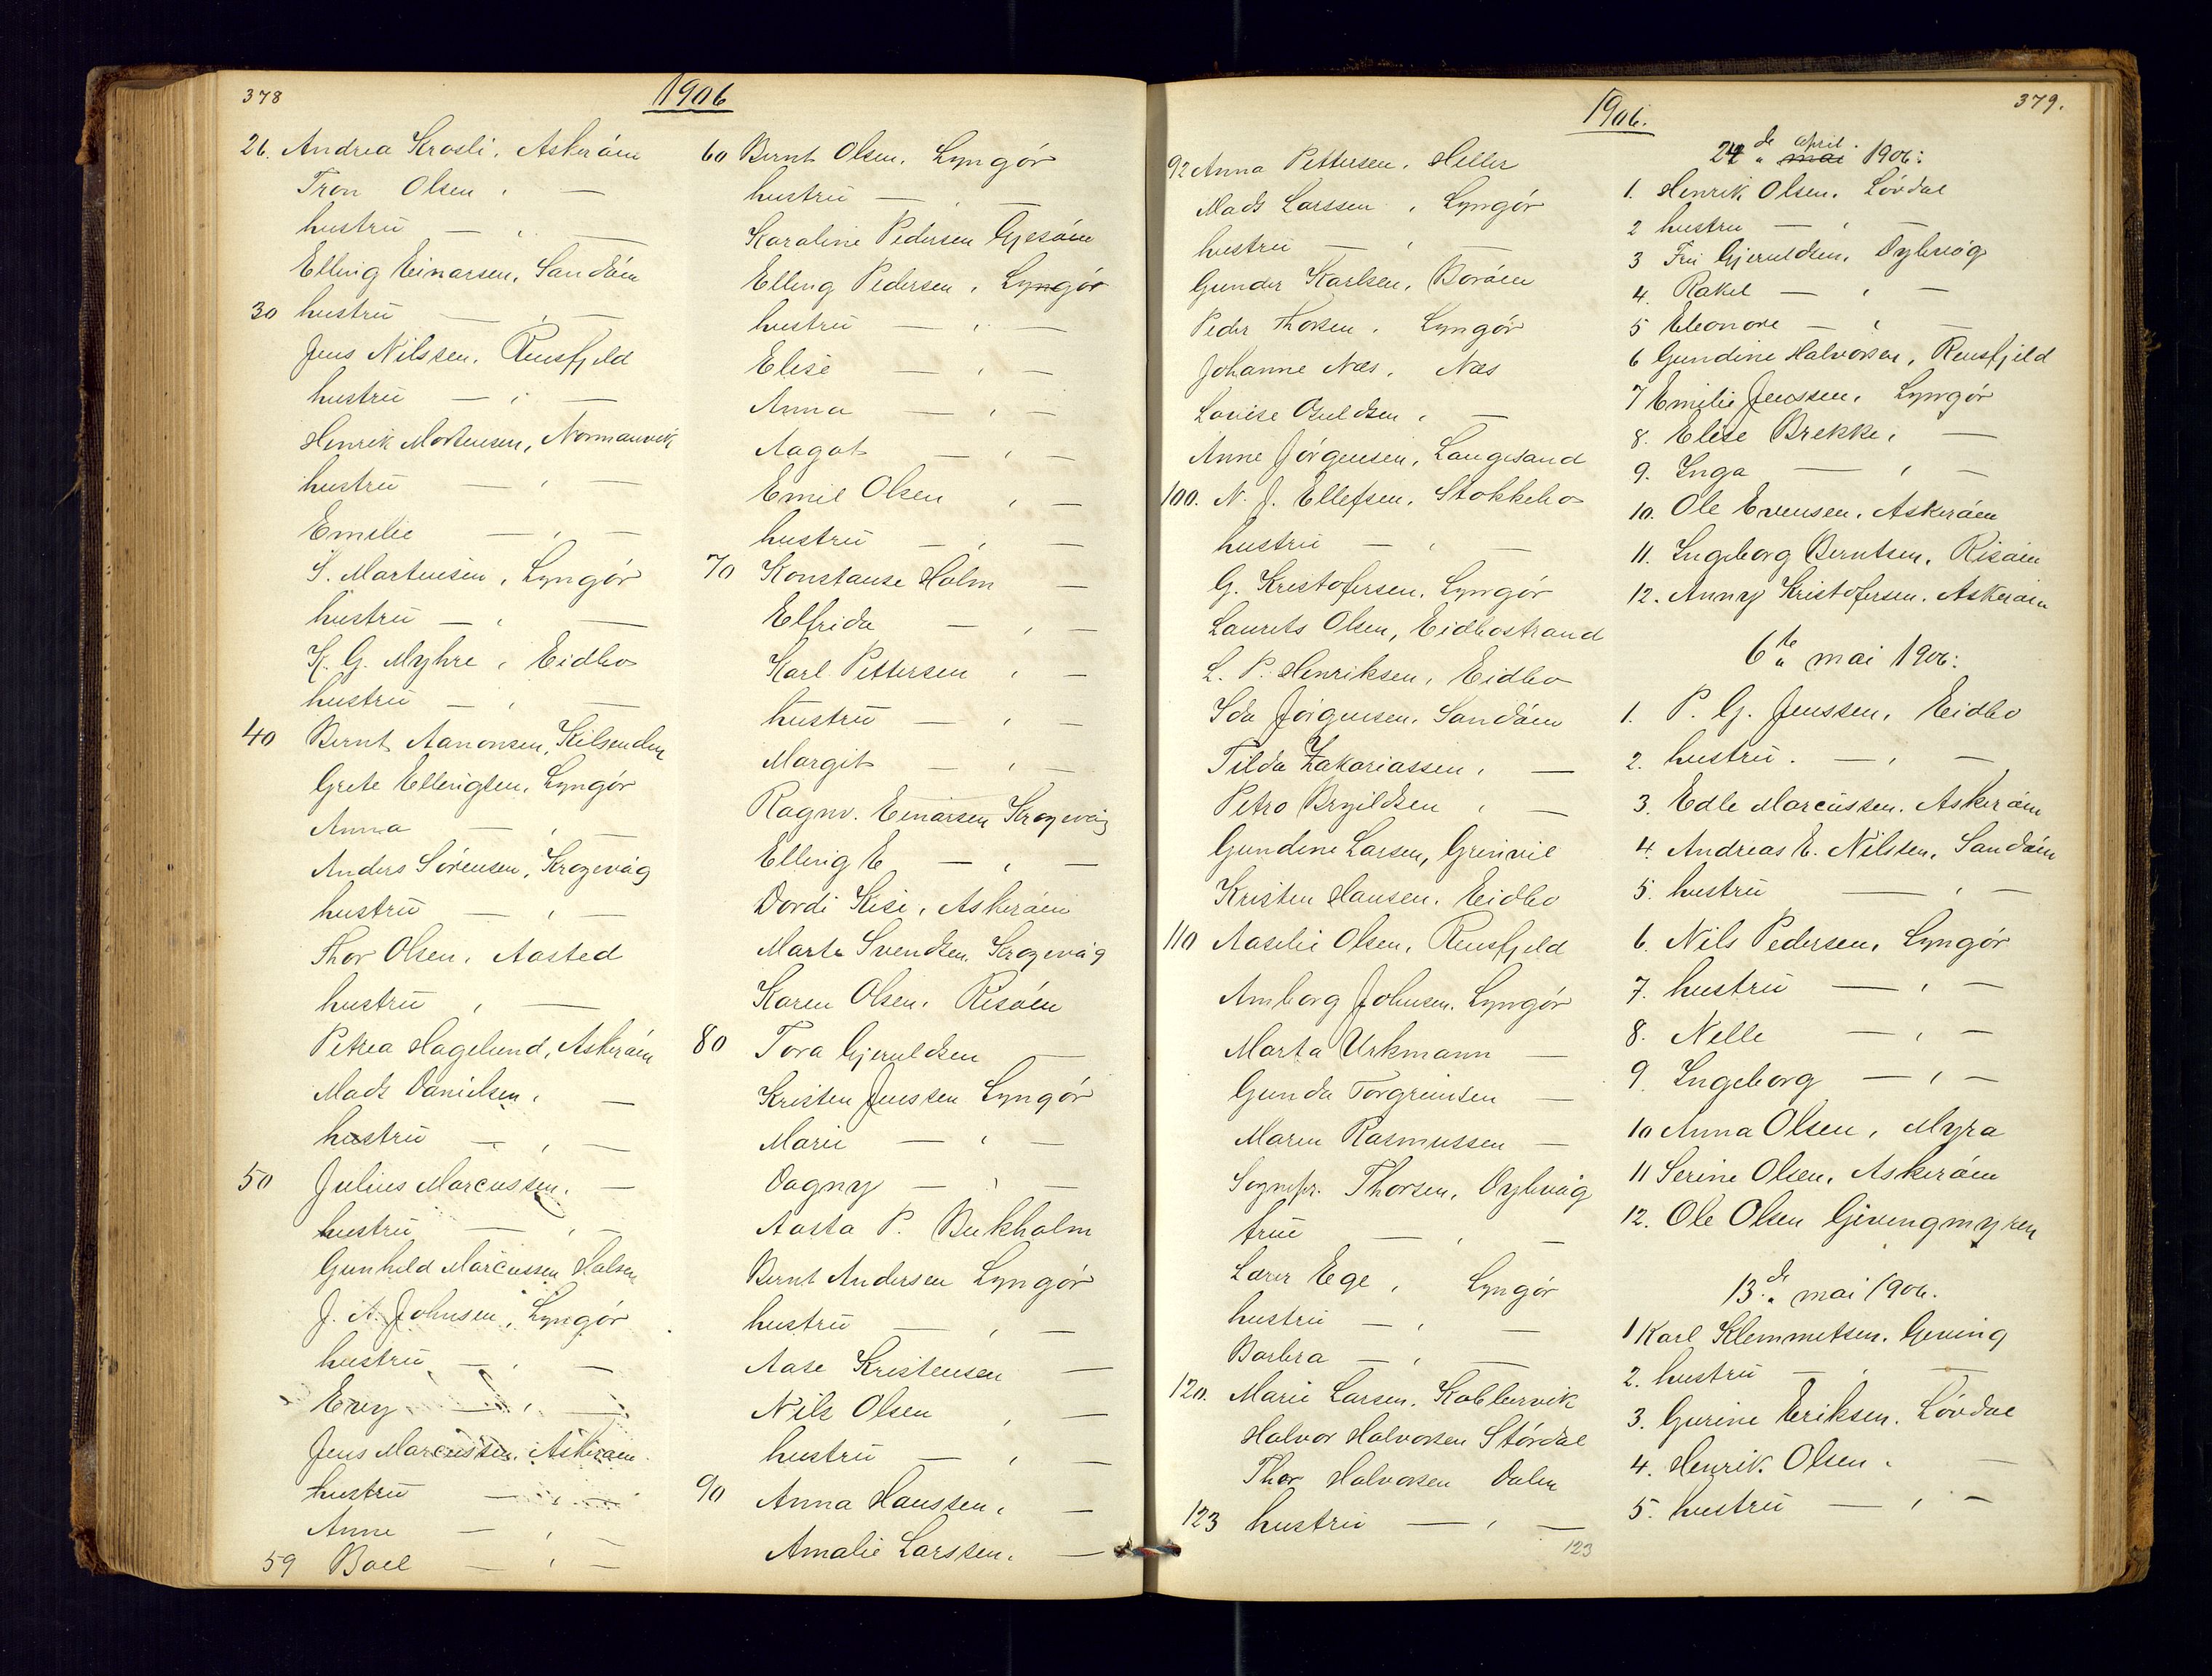 378
1906
26. Andrea Krosli. Askeröen
Tron Olsen . —
hustru — . —
Elling Einarsen. Sandöen
30 hustru — . —
Jens Nilssen. Rensfjeld
hustru — . —
Henrik Mortensen, Normanvik
hustru — . —
Emilie — . —
S. Martensen. Lyngör
hustru — . —
K. G. Myhre . Eidbo
hustru — . —
40 Bernt Aanonsen, Kilsenden
Grete Ellingsen. Lyngör
Anna — . —
Anders Sörensen, Krogevåg
hustru — . —
Thor Olsen. Aasted
hustru . —
Petrea Hagelund, Askeröen
Mads Danielsen. —
hustru — . —
50 Julius Marcussen. —
hustru — . —
Gunhild Marcussen Halsen
J. A. Johnsen. Lyngör
hustru — . —
Evy — . —
Jens Marcussen. Askeröen.
hustru — . —
Anne — . —
59 Boel — . —
60 Bernt Olsen. Lyngör
hustru — . —
Karoline Pedersen Gjesöen
Elling Pedersen . Lyngör
hustru — . —
Elise — . —
Anna — . —
Aagot — . —
Emil Olsen . —
hustru — . —
70 Konstanse Holm —
Elfrida — . —
Karl Pettersen . —
hustru — . —
Margit — . —
Ragnv. Einarsen Krogevåg
Elling E — . —
Dordi Kise . Askeröen
Marta Svendsen. Krogevåg
Karen Olsen. Risöen
80 Tora Gjeruldsen —
Kristen Jenssen Lyngör
Marie — . —
Dagny — . —
Aasta P. Bukholm
Bernt Andersen Lyngör
hustru — . —
Aase Kristensen —
Nils Olsen . —
hustru — . —
90 Anna Hanssen. —
Amalie Larssen. —
379.
1906.
92 Anna Pettersen. Hiller
Mads Larssen . Lyngör
hustru — . —
Gunder Karlsen. Boröen
Peder Thorsen . Lyngör
Johanne Næs . Næs
Lovise Guldsen . —
Anne Jörgensen, Langesand
100. N. J. Ellefsen. Stokkebo
hustru — . —
G. Kristofersen. Lyngör
Laurits Olsen, Eidbostrand
L. P. Henriksen. Eidbo
Ida Jörgensen. Sandöen
Tilda Zakariassen . —
Petro Brynildsen . —
Gundine Larsen, Grinvil
Kristen Hansen. Eidbo
110 Aaselie Olsen. Rensfjeld
Amborg Johnsen. Lyngör
Marta Urkmann —
Gunda Torgrimsen —
Maren Rasmussen —
Sognepr. Thorsen. Dybvåg
frue — . —
Lærer Ege . Lyngör
hustru — . —
Barbra — . —
120. Marie Larsen. Kobbervik
Halvor Halvorsen Stördal
Thor Halvorsen Dalen
123 hustru — . —
123
24 de april. mai 1906:
1. Henrik Olsen. Lövdal
2 hustru — . —
3 Fru Gjeruldsen. Dybvåg
4. Rakel — . —
5 Eleonore — . —
6 Gundine Halvorsen. Rensfjeld
7 Emilie Jenssen. Lyngör
8. Elise Brekke. —
9. Inga — . —
10. Ole Evensen. Askeröen
11. Ingeborg Berntsen. Risöen
12. Anny Kristofersen. Askeröen
6te mai 1906:
1. P. G. Jenssen. Eidbo
2. hustru . — . —
3. Edle Marcussen. Askeröen
4. Andreas E. Nilsen. Sandöen
5. hustru — . —
6. Nils Pedersen. Lyngör
7. hustru — . —
8. Nelle — . —
9. Ingeborg — . —
10 Anna Olsen. Myra
11 Serine Olsen. Askeröen
12. Ole Olsen Givengmyren
13.de mai 1906.
1 Karl Klemmetsen. Geving
2. hustru — . —
3. Gurine Eriksen. Lövdal
4. Henrik Olsen . —
5. hustru — . —